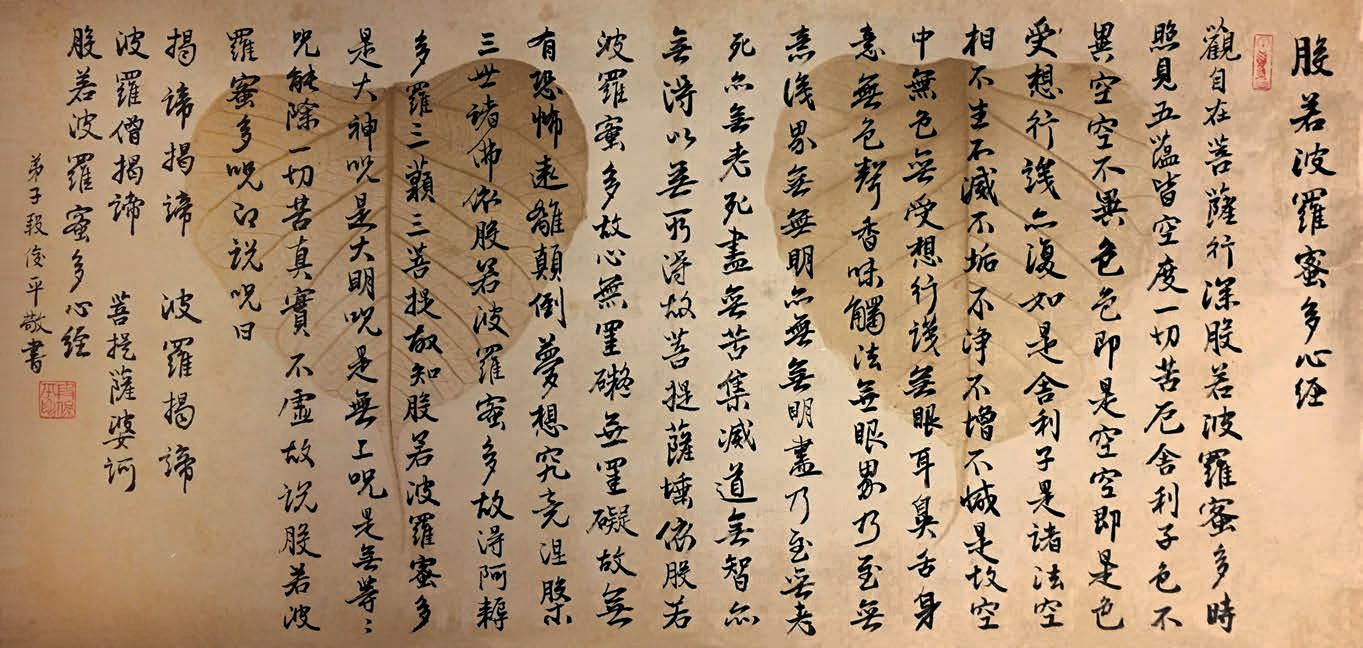 般若波羅蜜多心经
觀自在菩薩行深般若波羅蜜多時
照見五蕴皆空度一切苦厄舍利子色不
異空空不異色色即是空空即是色
受想行識亦復如是舍利子是諸法空
相不生不滅不垢不净不增不減是故空
中無色無受想行識無眼耳鼻舌身
意無色聲香味觸法無眼界乃至無
意識界無無明亦無無明盡乃至無老
死亦無老死盡無苦集滅道無智亦
無得以無所得故菩提薩埵依般若
波羅蜜多故心無罣礙無罣礙故無
有恐怖遠離顛倒夢想究竟涅槃
三世諸佛依般若波羅蜜多故得阿耨
多羅三藐三菩提故知般若波羅蜜多
是大神咒是大明咒是無上咒是無等々
咒能除一切苦真實不虛故說般若波
羅蜜多咒即說咒曰
揭諦揭諦 波羅揭諦
波羅僧揭諦 菩提薩婆訶
般若波羅蜜多心経
弟子段俊平敬書